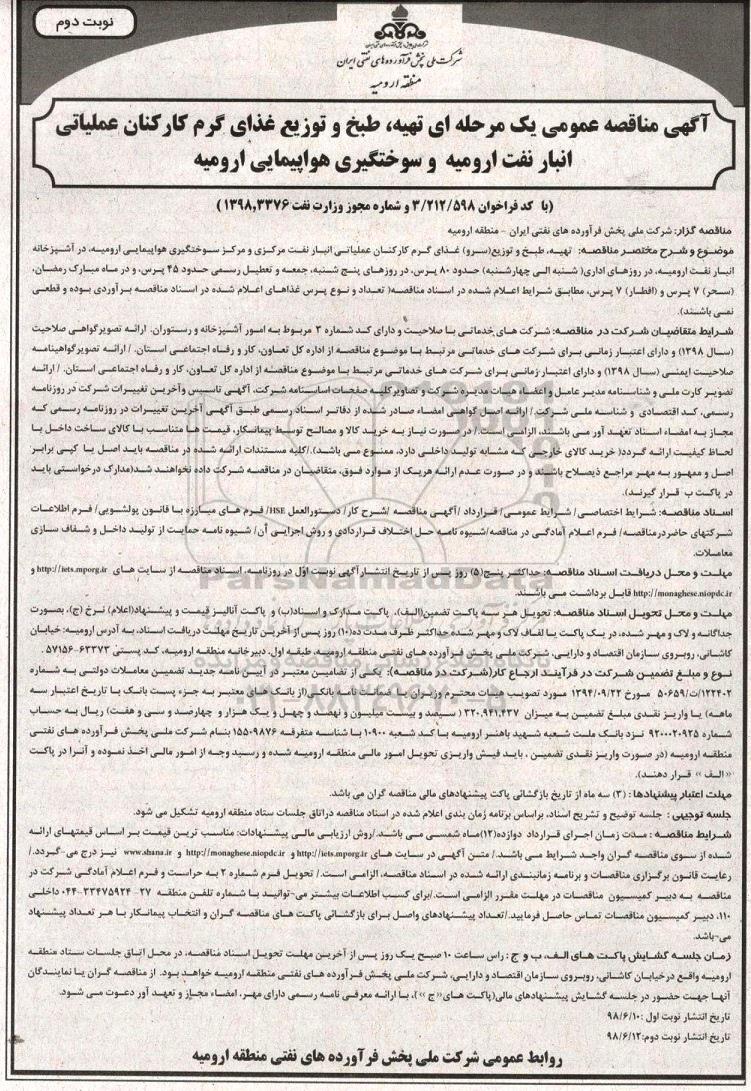 نوبت دوم
شرکت ملی پخش فرآورده های نفتی ایران
منطقه ارومیه
آگهی مناقصه عمومی یک مرحله ای تهیه، طبخ و توزیع غذای گرم کارکنان عملیاتی
انبار نفت ارومیه و سوختگیری هواپیمایی ارومیه
(با کد فراخوان ۳/۲۱۲/۵۹۸ و شماره مجوز وزارت نفت ۱۳۹۸,۳۳۷۶)
مناقصه گزار: شرکت ملی پخش فرآورده های نفتی ایران - منطقه ارومیه
موضوع و شرح مختصر مناقصه: تهیه، طبخ و توزیع(سرو) غذای گرم کارکنان عملیاتی انبار نفت مرکزی و مرکز سوختگیری هواپیمایی ارومیه، در آشپزخانه
انبار نفت ارومیه، در روزهای اداری( شنبه الی چهارشنبه) حدود ۸۰ پرس، در روزهای پنج شنبه، جمعه و تعطیل رسمی حدود ۴۵ پرس، و در ماه مبارک رمضان،
(سحر) ۷ پرس و (افطار) ۷ پرس، مطابق شرایط اعلام شده در اسناد مناقصه( تعداد و نوع پرس غذاهای اعلام شده در اسناد مناقصه برآوردی بوده و قطعی
نمی باشند).
شرایط متقاضیان شرکت در مناقصه: شرکت های خدماتی با صلاحیت و دارای کد شماره ۳ مربوط به امور آشپزخانه و رستوران. ارائه تصویرگواهی صلاحیت
(سال ۱۳۹۸) و دارای اعتبار زمانی برای شرکت های خدماتی مرتبط با موضوع مناقصه از اداره کل تعاون، کار و رفاه اجتماعی استان. / ارائه تصویر گواهینامه
صلاحیت ایمنی (سال ۱۳۹۸) و دارای اعتبار زمانی برای شرکت های خدماتی مرتبط با موضوع مناقصه از اداره کل تعاون، کار و رفاه اجتماعی استان. / ارائه
تصویر کارت ملی و شناسنامه مدیر عامل و اعضاء هیات مدیره شرکت و تصاویر کلیه صفحات اساسنامه شرکت، آگهی تاسیس وآخرین تغییرات شرکت در روزنامه
رسمی، کد اقتصادی و شناسه ملی شرکت./ ارائه اصل گواهی امضاء صادر شده از دفاتر اسناد رسمی طبق آگهی آخرین تغییرات در روزنامه رسمی که
مجاز به امضاء اسناد تعهد آور می باشند، الزامی است./ در صورت نیاز به خرید کالا و مصالح توسط پیمانکار، قیمت ها متناسب با کالای ساخت داخل با
لحاظ کیفیت ارائه گردد( خرید کالای خارجی که مشابه تولید داخلی دارد، ممنوع می باشد)./کلیه مستندات ارائه شده در مناقصه باید اصل یا کپی برابر
اصل و ممهور به مهر مراجع ذیصلاح باشند و در صورت عدم ارائه هریک از موارد فوق، متقاضیان در مناقصه شرکت داده نخواهند شد(مدارک درخواستی باید
در پاکت ب قرار گیرند).
اسناد مناقصه: شرایط اختصاصی/ شرایط عمومی/ قرارداد /آگهی مناقصه /شرح کار/ دستورالعمل HSE/ فرم های مبارزه با قانون پولشویی/ فرم اطلاعات
شرکتهای حاضردرمناقصه/ فرم اعلام آمادگی در مناقصه/شیوه نامه حل اختلاف قراردادی و روش اجرایی آن/ شیوه نامه حمایت از تولید داخل و شفاف سازی
معاملات.
مهلت و محل دریافت اسناد مناقصه: حداکثر پنج(۵) روز پس از تاریخ انتشار آگهی نوبت اول در روزنامه، اسناد مناقصه از سایت های http://iets.mporg.ir و
http://monaghese.niopdc.ir قابل برداشت می باشند.
مهلت و محل تحویل اسناد مناقصه: تحویل هر سه پاکت تضمین(الف)، پاکت مدارک و اسناد(ب) و پاکت آنالیز قیمت و پیشنهاد(اعلام) نرخ (ج)، بصورت
جداگانه و لاک و مهر شده، در یک پاکت یا لفاف لاک و مهر شده حداکثر ظرف مدت ده(۱۰) روز پس از آخرین تاریخ مهلت دریافت اسناد، به آدرس ارومیه: خیابان
کاشانی، روبروی سازمان اقتصاد و دارایی، شرکت ملی پخش فرآورده های نفتی منطقه ارومیه، طبقه اول، دبیرخانه منطقه ارومیه، کد پستی ۶۳۳۷۳-۵۷۱۵۶ .
نوع و مبلغ تضمین شرکت در فرآیند ارجاع کار(شرکت در مناقصه): یکی از تضامین معتبر در آیین نامه جدید تضمین معاملات دولتی به شماره
۱۲۳۴۰۲/ت/۵۰۶۵۹ مورخ ۱۳۹۴/۰۹/۲۲ مورد تصویب هیات محترم وزیران یا ضمانت نامه بانکی(از بانک های معتبر به جزء پست بانک با تاریخ اعتبار سه
ماهه) یا واریز نقدی مبلغ تضمین به میزان ۳۲۰,۹۴۱,۴۳۷ ( سیصد و بیست میلیون و نهصد و چهل و یک هزار و چهارصد و سی و هفت) ریال به حساب
شماره ۹۲۰۰۰۲۰۹۲۵ نزد بانک ملت شعبه شهید باهنر ارومیه با کد شعبه ۱۰۹۰۰ با شناسه متفرقه ۱۵۵۰۹۸۷۶ بنام شرکت ملی پخش فرآورده های نفتی
منطقه ارومیه (در صورت واریز نقدی تضمین ، باید فیش واریزی تحویل امور مالی منطقه ارومیه شده و رسید وجه از امور مالی اخذ نموده و آنرا در پاکت
«الف» قرار دهند).
مهلت اعتبار پیشنهادها : (۳) سه ماه از تاریخ بازگشائی پاکت پیشنهادهای مالی مناقصه گران می باشد.
جلسه توجیهی : جلسه توضیح و تشریح اسناد، براساس برنامه زمان بندی اعلام شده در اسناد مناقصه دراتاق جلسات ستاد منطقه ارومیه تشکیل می شود.
شرایط مناقصه : مدت زمان اجرای قرارداد دوازده(۱۲)ماه شمسی می باشد./روش ارزیابی مالی پیشنهادات: مناسب ترین قیمت بر اساس قیمتهای ارائه
شده از سوی مناقصه گران واجد شرایط می باشد./ متن آگهی در سایت های http://iets.mporg.ir و http://monaghese.niopdc.ir و www.shana.ir نیز درج می-گردد./
رعایت قانون برگزاری مناقصات و برنامه زمانبندی ارائه شده در اسناد مناقصه، الزامی است./ تحویل فرم شماره ۲ به حراست و فرم اعلام آمادگی شرکت در
مناقصه به دبیر کمیسیون مناقصات در مهلت مقرر الزامی است./برای کسب اطلاعات بیشتر می-توانید با شماره تلفن منطقه ۲۷- ۳۳۴۷۵۹۲۴-۰۴۴ داخلی
۱۱۰، دبیر کمیسیون مناقصات تماس حاصل فرمایید./تعداد پیشنهادهای واصل برای بازگشائی پاکت های مناقصه گران و انتخاب پیمانکار با هر تعداد پیشنهاد
می-باشد.
زمان جلسه گشایش پاکت های الف، ب و ج : راس ساعت ۱۰ صبح یک روز پس از آخرین مهلت تحویل اسناد مناقصه، در محل اتاق جلسات ستاد منطقه
ارومیه واقع درخیابان کاشانی، روبروی سازمان اقتصاد و دارایی، شرکت ملی پخش فرآورده های نفتی منطقه ارومیه خواهد بود. از مناقصه گران یا نمایندگان
آنها جهت حضور در جلسه گشایش پیشنهادهای مالی(پاکت های«ج»)، با ارائه معرفی نامه رسمی دارای مهر، امضاء مجاز و تعهد آور دعوت می شود.
تاریخ انتشار نوبت اول : ۹۸/۶/۱۰
تاریخ انتشار نوبت دوم: ۹۸/۶/۱۲
روابط عمومی شرکت ملی پخش فرآورده های نفتی منطقه ارومیه
ParsNamadData